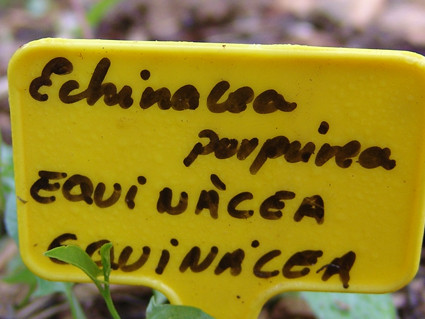 Echinacea
purpurea
EQUINÀCEA
EQUINÁCEA